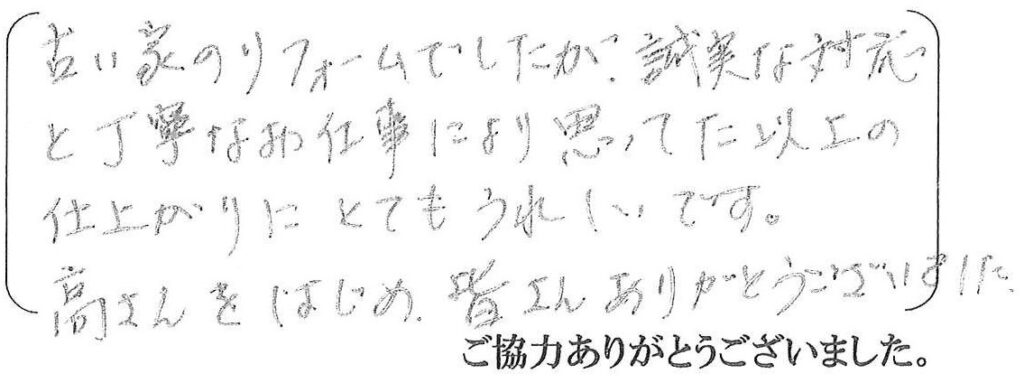 古い家のリフォームでしたが、誠実な対応
と丁寧なお仕事により思ってた以上の
仕上がりにとてもうれしいです。
高さんをはじめ、皆さんありがとうございました
ご協力ありがとうございました。